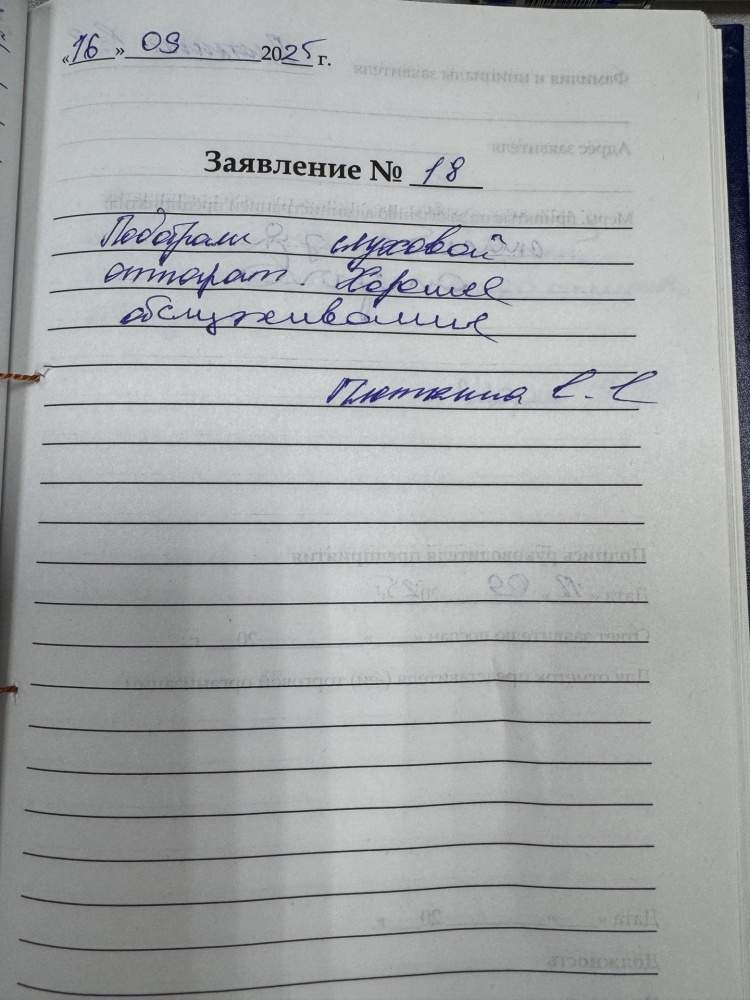 «16» 09 2025 г.
Заявление № 18
Подобрали слуховой
аппарат. Хорошее
обслуживание